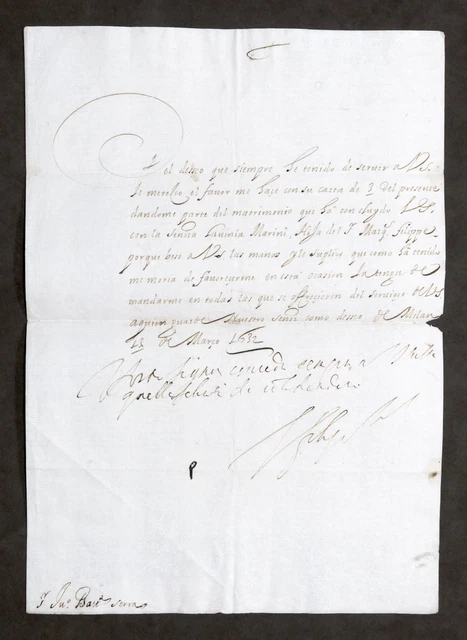 el deseo que siempre he tenido de servir a V.S.
le meresce el favor me haze con su carta de 3 del presente
dandome parte del matrimonio que ha concluydo V.S.
con la Señra Lavinia Marini, Hija del S. Marq. Filippe
porque beso a V.S. las manos y le suplico que como ha tenido
memoria de favorecerme en esta ocasion la tenga de
mandarme en todas las que se ofrecieren del servicio de V.S.
a quien guarde Nuestro Señor como deseo de Milan
13 de Março 1632
conceda sempre a
quelle che
Jua. Batt. Serra